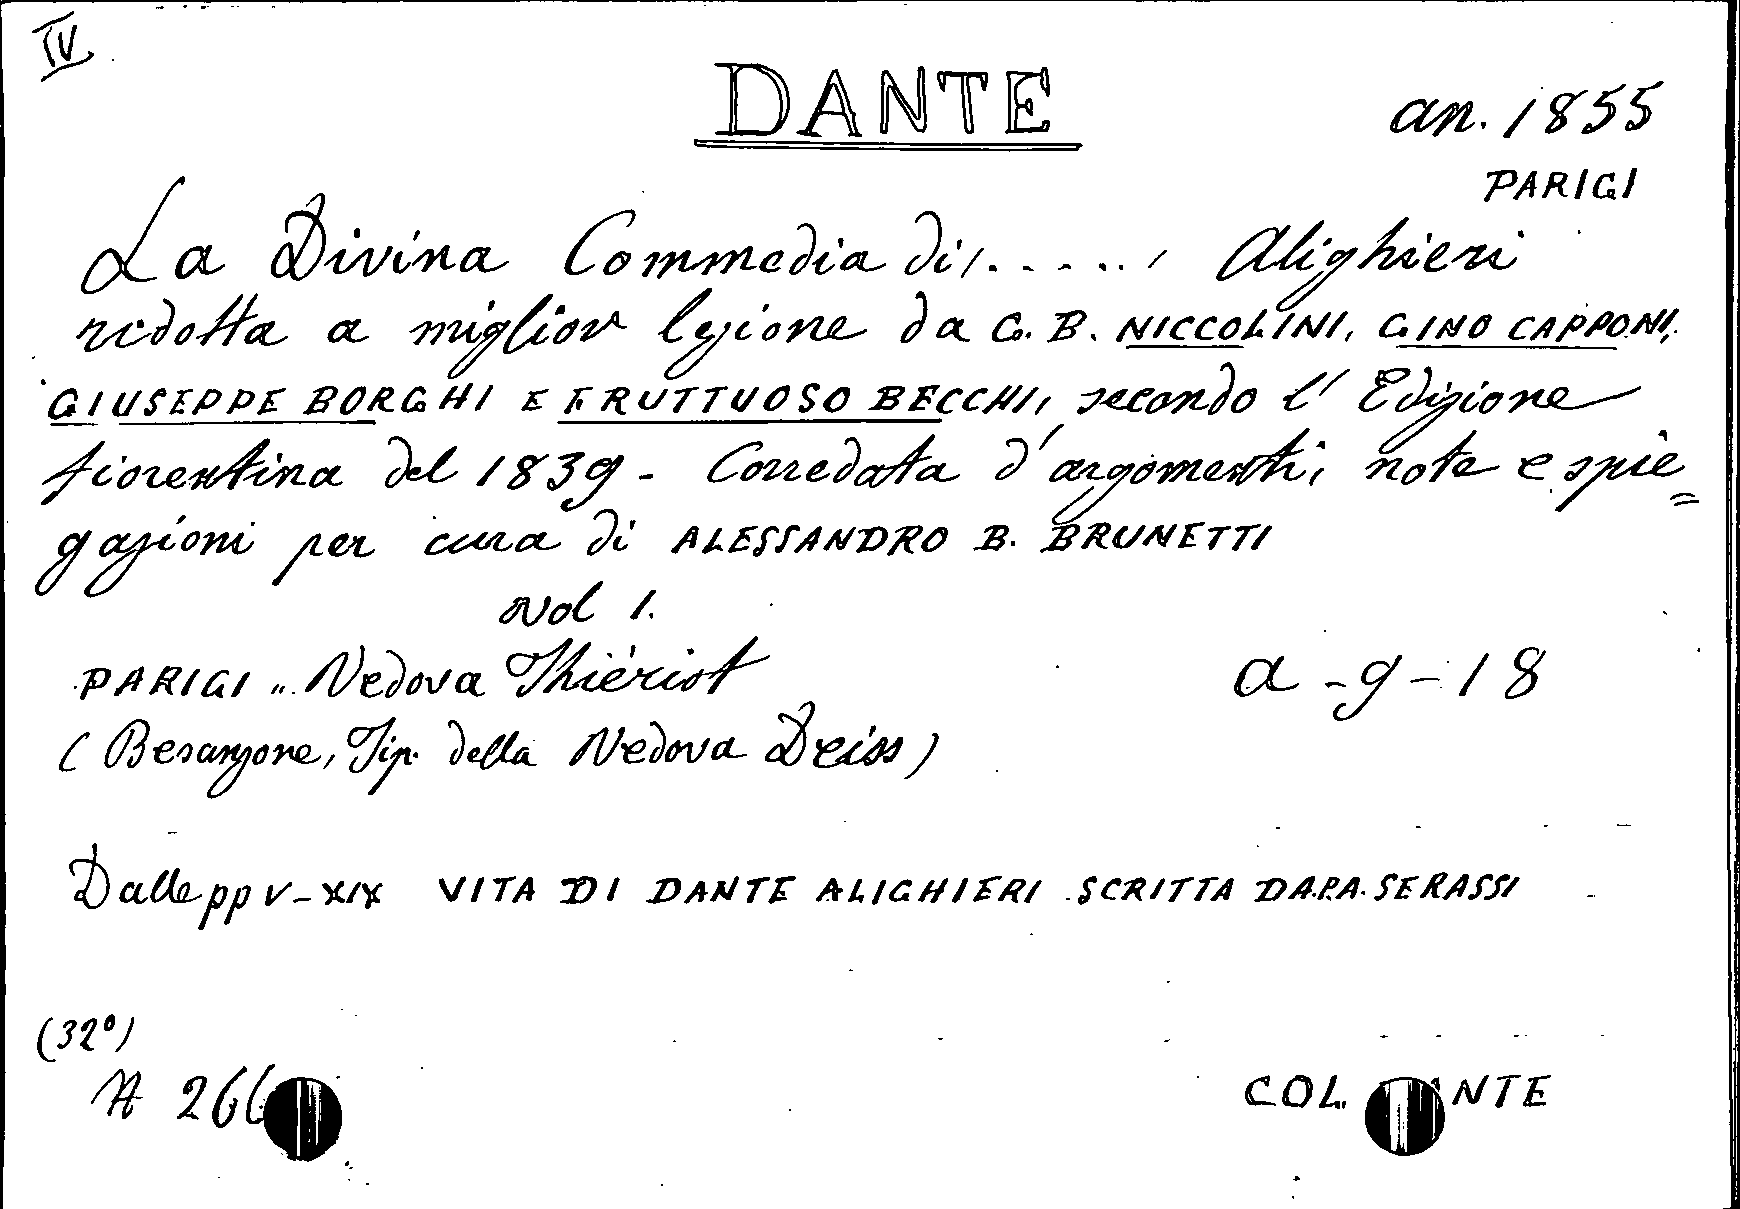 IV
DANTE
an. 1855
PARIGI
La Divina Commedia di, . . . . . , Alighieri
ridotta a miglior lezione da G. B. NICCOLINI, GINO CAPPONI,
GIUSEPPE BORGHI E FRUTTUOSO BECCHI, secondo l' Edizione
fiorentina del 1839 - Corredata d'argomenti, note e spie=
gazioni per cura di ALESSANDRO B. BRUNETTI
Vol 1.
PARIGI .. Vedova Thiériot
a - g - 18
(Besanzone, Tip. della Vedova Deiss)
Dalle pp V - XIX VITA DI DANTE ALIGHIERI SCRITTA DA P.A. SERASSI
(32°)
A 266
COL. NTE